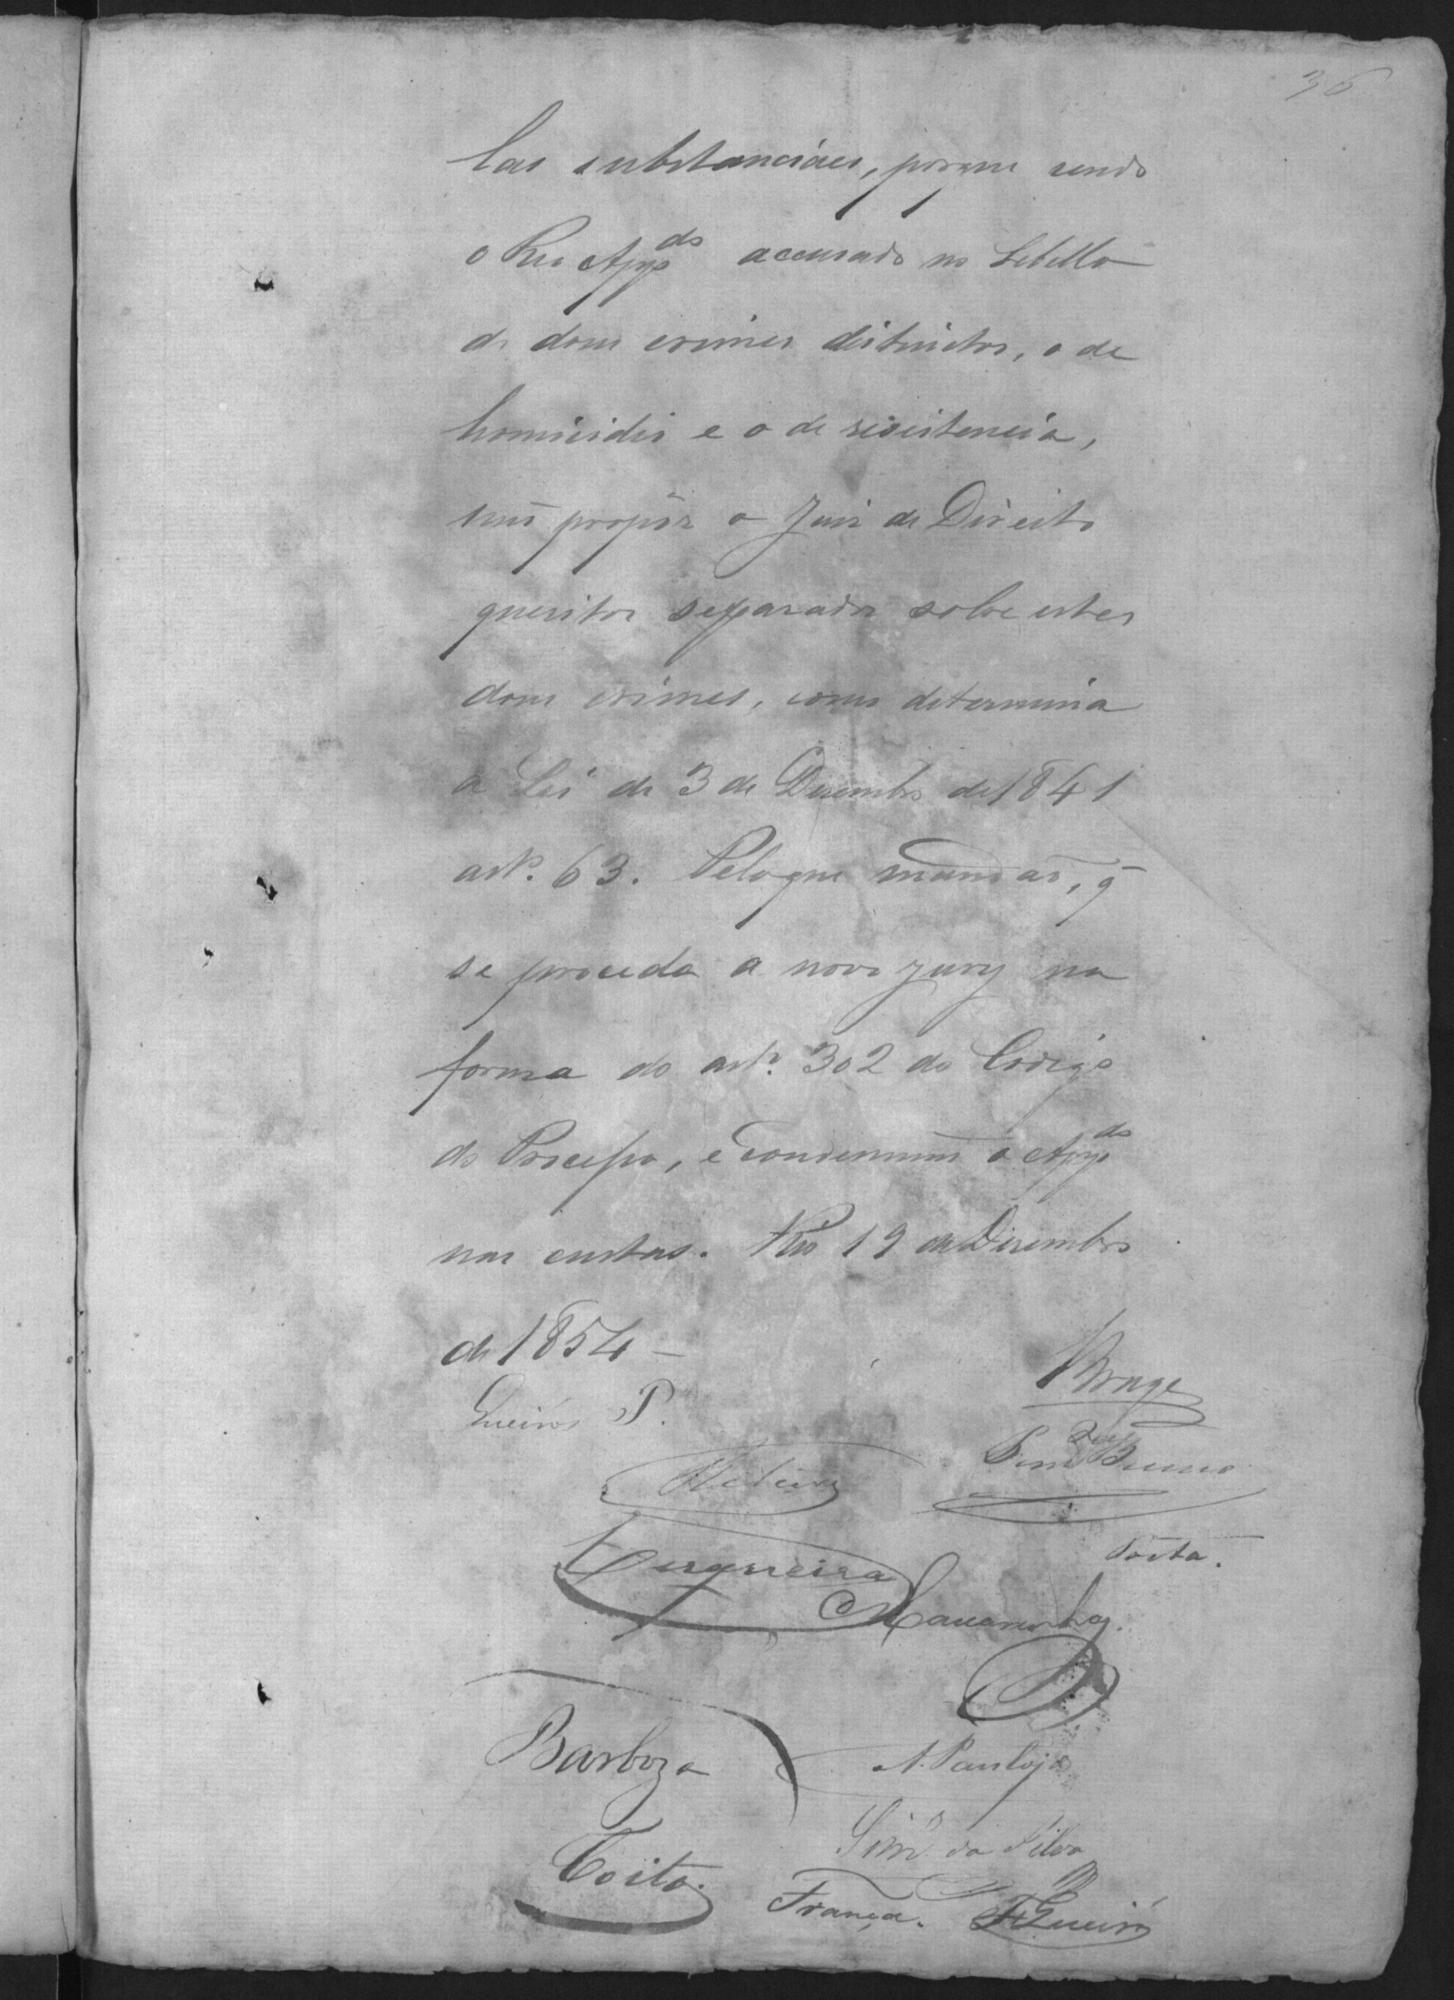 36
las substanciaes, porque sendo
o Reo App.do accusado no Libello
de dous crimes distinctos, o de
homicidio e o de resistencia,
não propôz o Juiz de Direito
quesitos separados sobre estes
dous crimes, como determina
a Lei de 3 de Dezembro de 1841
art.º 63. Pelo que mandão, q̃
se proceda a novo jury na
forma do art.º 302 do Codigo
do Processo, e condemnão o App.do
nas custas. Rio 19 de Dezembro
de 1854 —
Queirós P.
Braga
Siqueira
Mascarenhas.
Barboza
A. Pantoja
da Silva
Couto.
França.